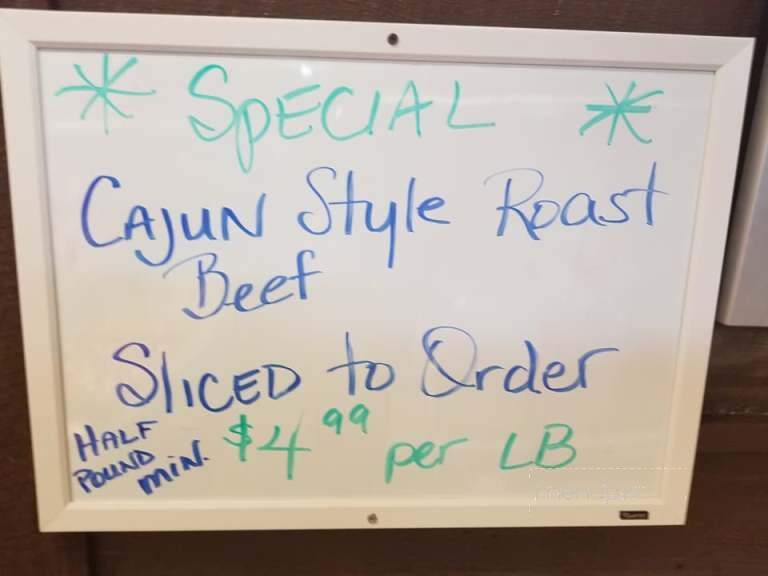 * SPECIAL *
CAJUN Style Roast
Beef
SLICED to Order
HALF
POUND
MIN.
$4.99 per LB